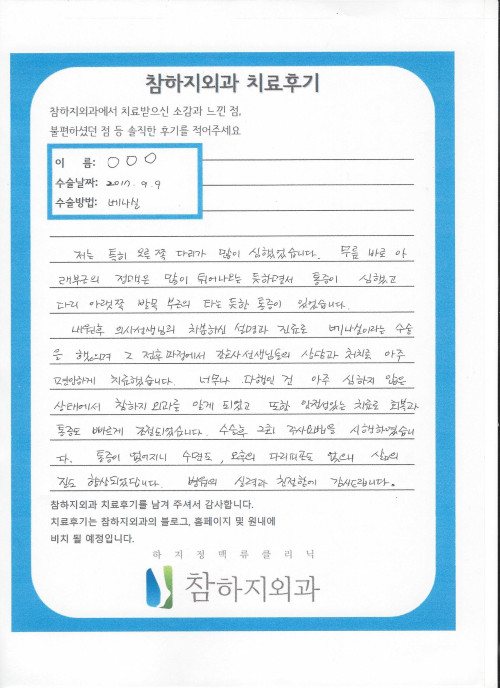 참하지외과 치료후기
참하지외과에서 치료받으신 소감과 느낀 점,
불편하셨던 점 등 솔직한 후기를 적어주세요
이 름: ○○○
수술날짜: 2017. 9. 9
수술방법: 베나실
저는 특히 오른쪽 다리가 많이 심했었습니다. 무릎 바로 아
래부근의 정맥은 많이 튀어나오는 듯하면서 통증이 심했고
다리 아랫쪽 발목 부근의 타는 듯한 통증이 있었습니다.
내원후 의사선생님의 차분하신 설명과 진료로 베나실이라는 수술
을 했으며 그 전후과정에서 간호사선생님들의 상담과 처치로 아주
편안하게 치료했습니다. 너무나 다행인 건 아주 심하지 않은
상태에서 참하지외과를 알게 되었고 또한 안정성있는 치료로 회복과
통증도 빠르게 조절되었습니다. 수술후 2회 주사요법을 시행하였습니
다. 통증이 없어지니 수면도, 오후의 다리피로도 없으니 삶의
질도 향상되었답니다. 병원의 실력과 친절함에 감사드립니다.
참하지외과 치료후기를 남겨 주셔서 감사합니다.
치료후기는 참하지외과의 블로그, 홈페이지 및 원내에
비치 될 예정입니다.
하지정맥류클리닉
참하지외과